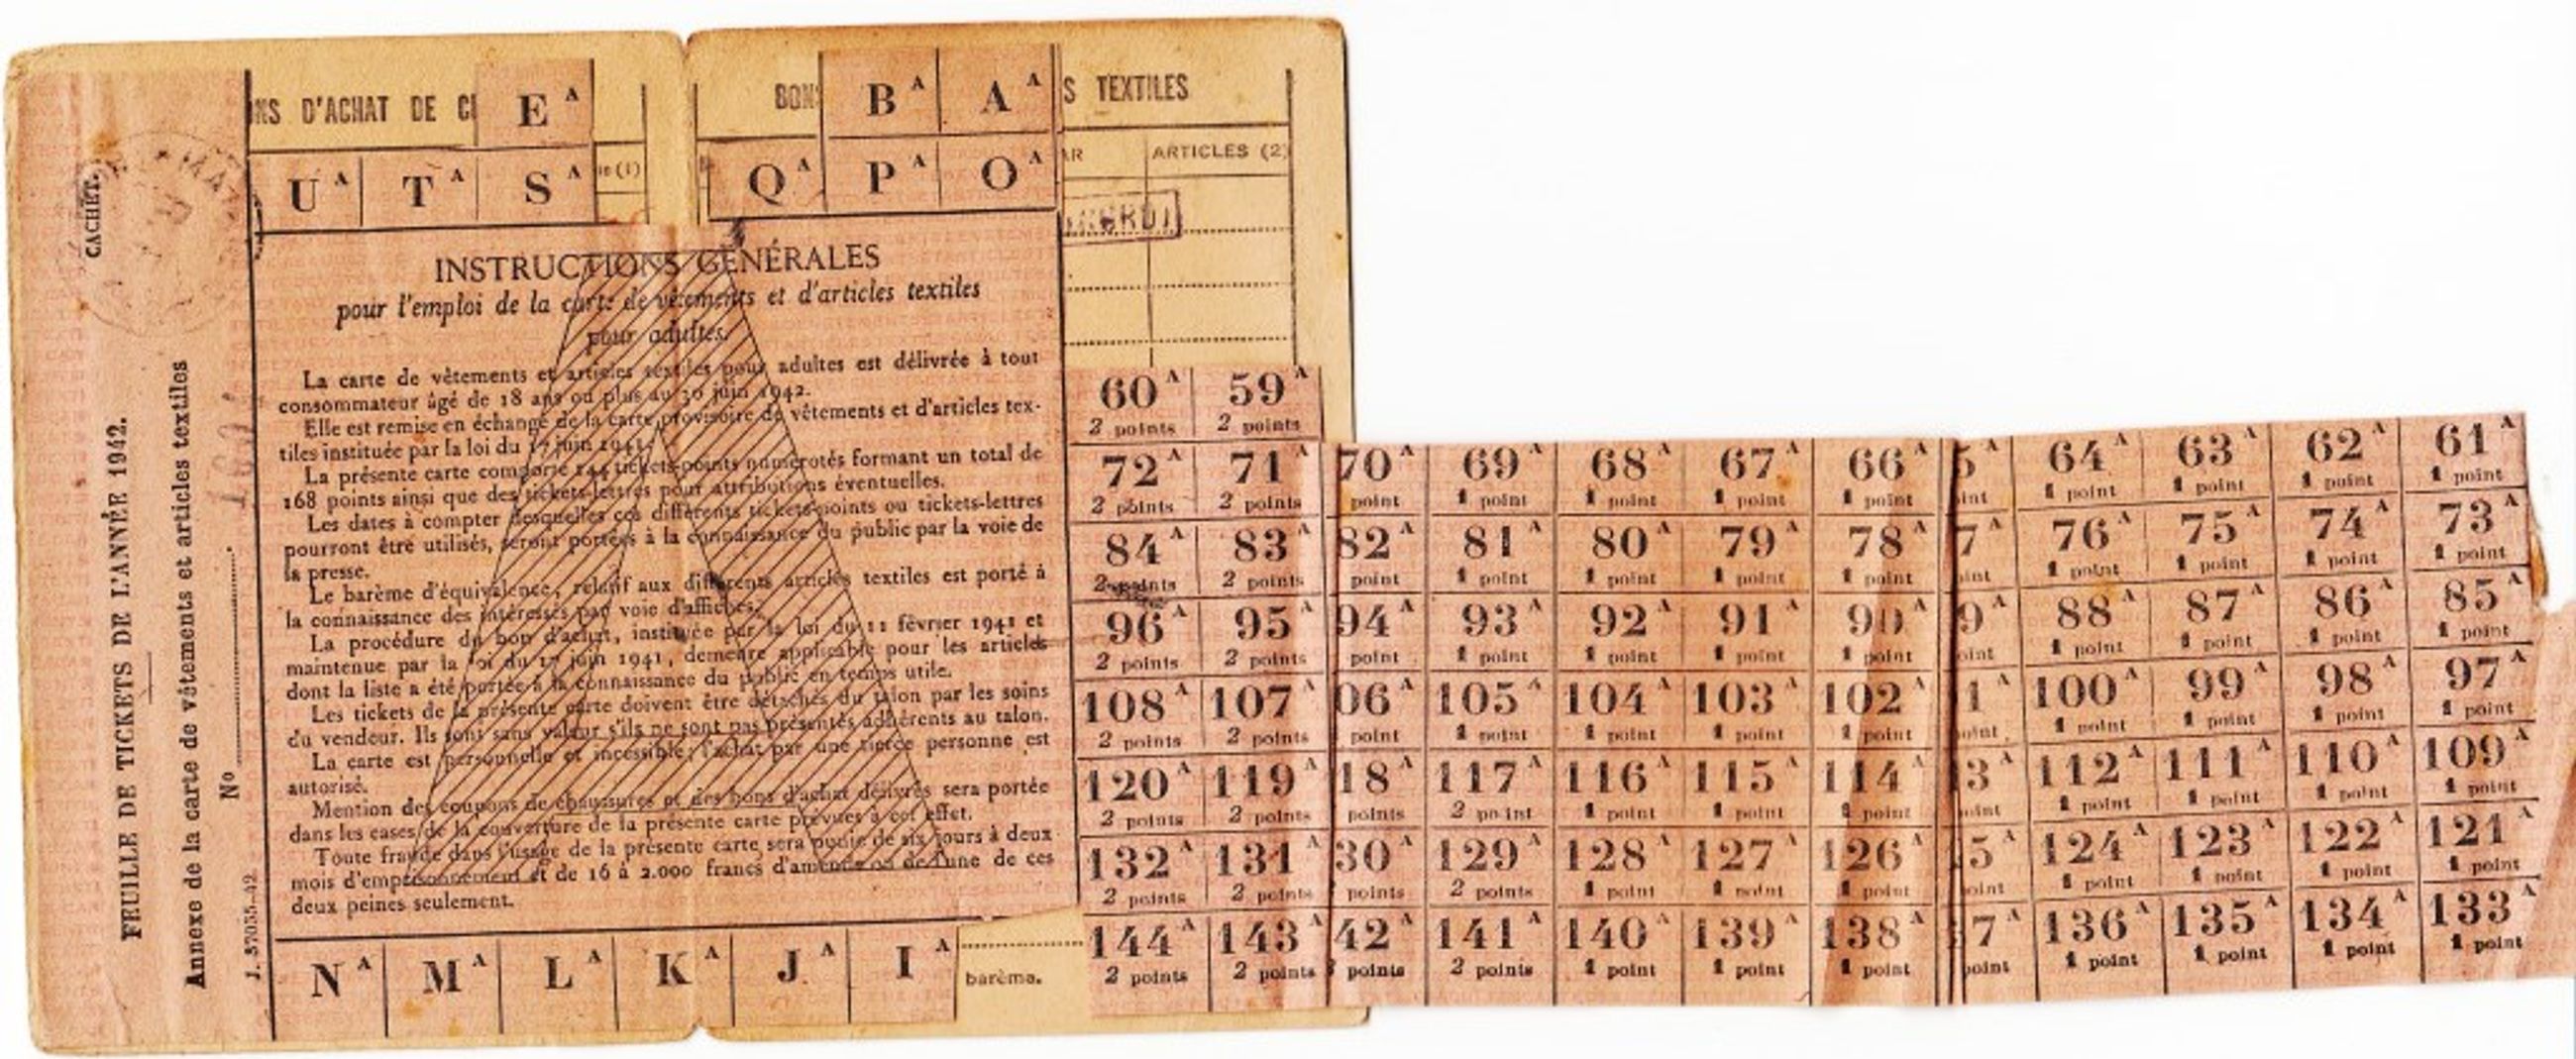 CACHET.
FEUILLE DE TICKETS DE L'ANNÉE 1942.
Annexe de la carte de vêtements et articles textiles
No
J. 37055-42.
NS D'ACHAT DE C
E A
BON
B A
A A
S TEXTILES
U A
T A
S A
Q A
P A
O A
AR
ARTICLES (2)
INSTRUCTIONS GÉNÉRALES
pour l'emploi de la carte de vêtements et d'articles textiles
pour adultes.
La carte de vêtements et articles textiles pour adultes est délivrée à tout
consommateur âgé de 18 ans ou plus au 30 juin 1942.
Elle est remise en échange de la carte provisoire de vêtements et d'articles tex-
tiles instituée par la loi du 17 juin 1941.
La présente carte comporte 144 tickets-points numérotés formant un total de
168 points ainsi que des tickets-lettres pour attributions éventuelles.
Les dates à compter desquelles ces différents tickets-points ou tickets-lettres
pourront être utilisés, seront portées à la connaissance du public par la voie de
la presse.
Le barème d'équivalence, relatif aux différents articles textiles est porté à
la connaissance des intéressés par voie d'affiches.
La procédure du bon d'achat, instituée par la loi du 11 février 1941 et
maintenue par la loi du 17 juin 1941, demeure applicable pour les articles
dont la liste a été portée à la connaissance du public en temps utile.
Les tickets de la présente carte doivent être détachés du talon par les soins
du vendeur. Ils sont sans valeur s'ils ne sont pas présentés adhérents au talon.
La carte est personnelle et incessible; l'achat par une tierce personne est
autorisé.
Mention des coupons de chaussures et des bons d'achat délivrés sera portée
dans les cases de la couverture de la présente carte prévues à cet effet.
Toute fraude dans l'usage de la présente carte sera punie de six jours à deux
mois d'emprisonnement et de 16 à 2.000 francs d'amende ou de l'une de ces
deux peines seulement.
N A M A L A K A J A I A
barème.
60 A 59 A
2 points 2 points
72 A 71 A 70 A 69 A 68 A 67 A 66 A 5 A 64 A 63 A 62 A 61 A
2 points 2 points point 1 point 1 point 1 point 1 point int 1 point 1 point 1 point 1 point
84 A 83 A 82 A 81 A 80 A 79 A 78 A 7 A 76 A 75 A 74 A 73 A
2 points 2 points point 1 point 1 point 1 point 1 point int 1 point 1 point 1 point 1 point
96 A 95 A 94 A 93 A 92 A 91 A 90 A 9 A 88 A 87 A 86 A 85 A
2 points 2 points point 1 point 1 point 1 point 1 point oint 1 point 1 point 1 point 1 point
108 A 107 A 06 A 105 A 104 A 103 A 102 A 1 A 100 A 99 A 98 A 97 A
2 points 2 points point 1 point 1 point 1 point 1 point oint 1 point 1 point 1 point 1 point
120 A 119 A 18 A 117 A 116 A 115 A 114 A 3 A 112 A 111 A 110 A 109 A
2 points 2 points points 2 point 1 point 1 point 1 point point 1 point 1 point 1 point 1 point
132 A 131 A 30 A 129 A 128 A 127 A 126 A 5 A 124 A 123 A 122 A 121 A
2 points 2 points points 2 points 1 point 1 point 1 point oint 1 point 1 point 1 point 1 point
144 A 143 A 42 A 141 A 140 A 139 A 138 A 7 A 136 A 135 A 134 A 133 A
2 points 2 points points 2 points 1 point 1 point 1 point point 1 point 1 point 1 point 1 point